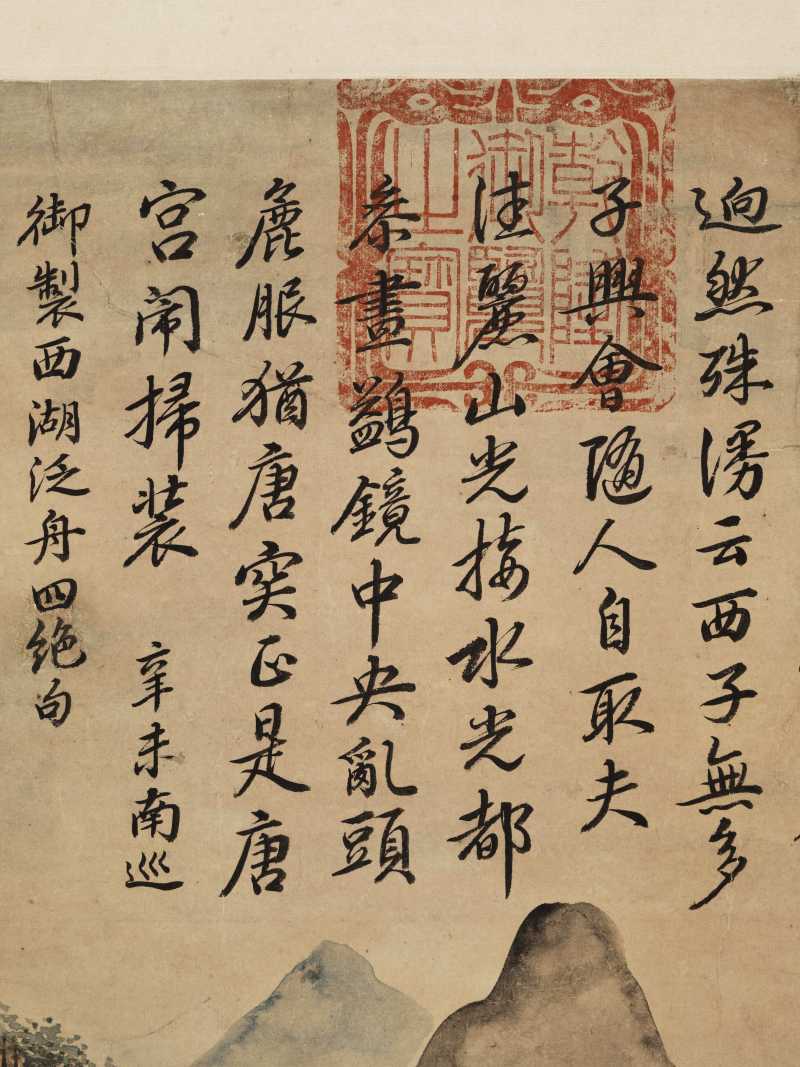 迥然殊漫云西子無多
子興會隨人自取夫
佳麗山光接水光都
來畫鷁鏡中央亂頭
麁服猶唐突正是唐
宮鬧掃裝 辛未南巡
御製西湖泛舟四絶句
乾隆御覽之寶